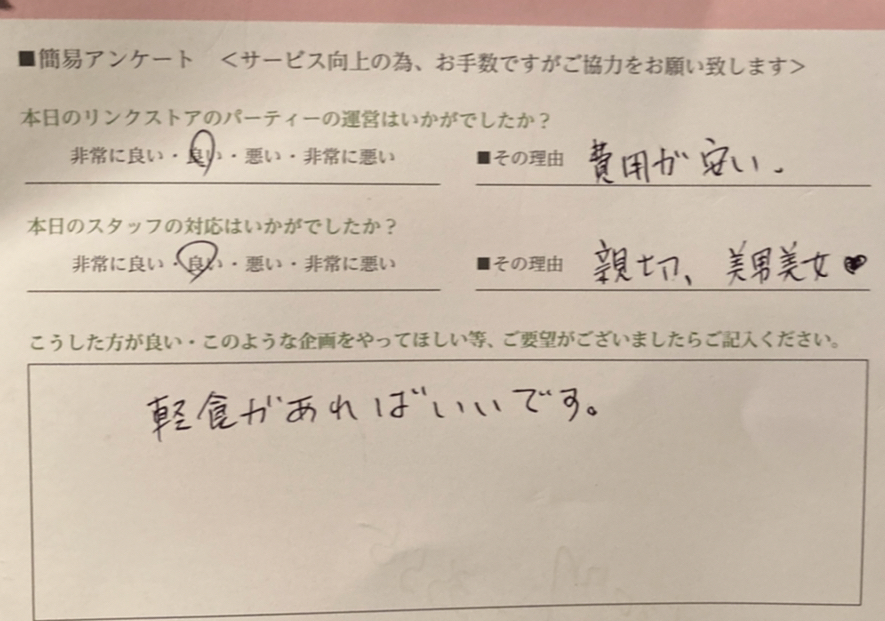 ■簡易アンケート <サービス向上の為、お手数ですがご協力をお願い致します>
本日のリンクストアのパーティーの運営はいかがでしたか？
非常に良い・良い・悪い・非常に悪い ■その理由 費用が安い。
本日のスタッフの対応はいかがでしたか？
非常に良い・良い・悪い・非常に悪い ■その理由 親切、美男美女♥
こうした方が良い・このような企画をやってほしい等、ご要望がございましたらご記入ください。
軽食があればいいです。